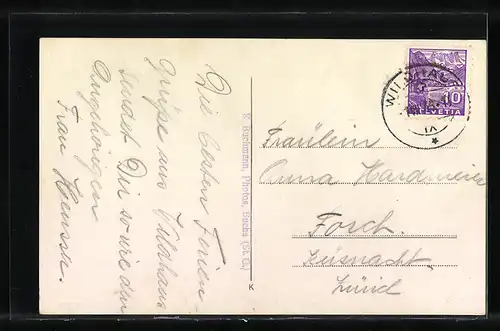 Die besten Ferien-
grüsse aus Wildhaus
sendet Dir sowie den
Angehörigen
Frau
K. Bachmann, Photos, Buchs (St. G.)
K
WILDHAUS
10
HELVETIA
IX
Fräulein
Anna Hardmeier
Forch
Küsnacht
Zürich